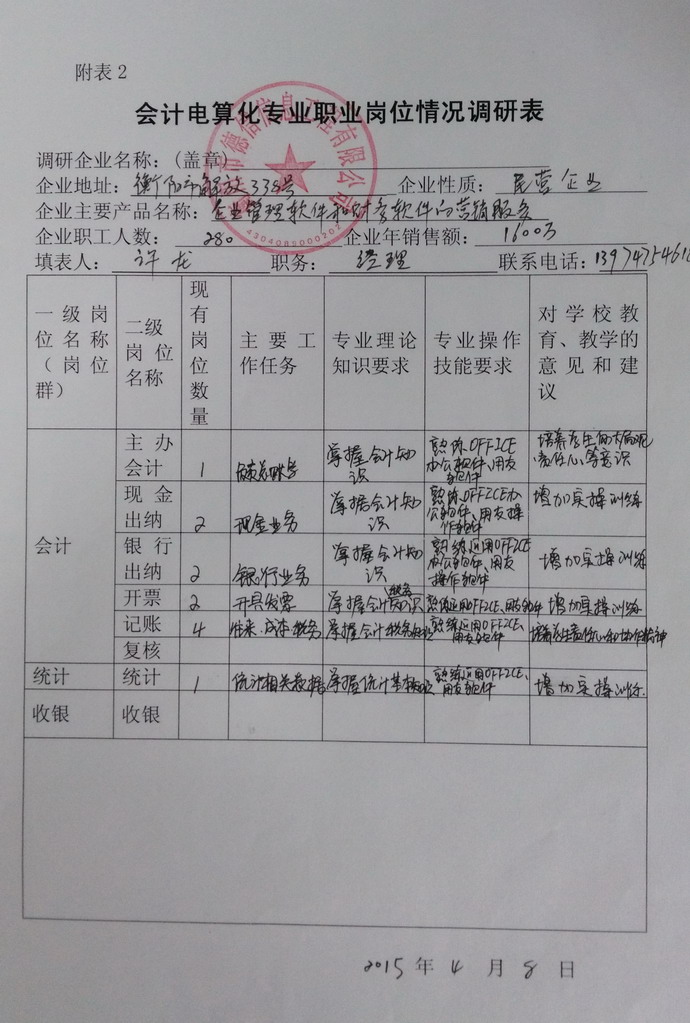 附表2
会计电算化专业职业岗位情况调研表
市德信信息工程有限公司
4304085000202
调研企业名称：(盖章)
企业地址：衡阳市解放338号 企业性质：民营企业
企业主要产品名称：企业管理软件和财务软件的营销服务
企业职工人数：280 企业年销售额：1600万
填表人：许龙 职务：经理 联系电话：1397475461
一级岗位名称（岗位群） 二级岗位名称 现有岗位数量 主要工作任务 专业理论知识要求 专业操作技能要求 对学校教育、教学的意见和建议
会计
主办会计 1 掌握会计知识 熟练OFFICE办公软件、用友软件 培养学生的责任心等意识
现金出纳 2 现金业务 掌握会计知识 熟练OFFICE办公软件、用友操作软件 增加实操训练
银行出纳 2 银行业务 掌握会计知识 熟练运用OFFICE办公软件、用友操作软件 增加实操训练
开票 2 开具发票 掌握会计税务知识 熟练运用OFFICE、用友软件 增加实操训练
记账 4 往来、成本、税务 掌握会计税务知识 熟练运用OFFICE、用友软件 培养学生责任心和协作精神
复核
统计 统计 1 统计相关数据 掌握统计基础知识 熟练运用OFFICE、用友软件 增加实操训练.
收银 收银
2015年4月8日